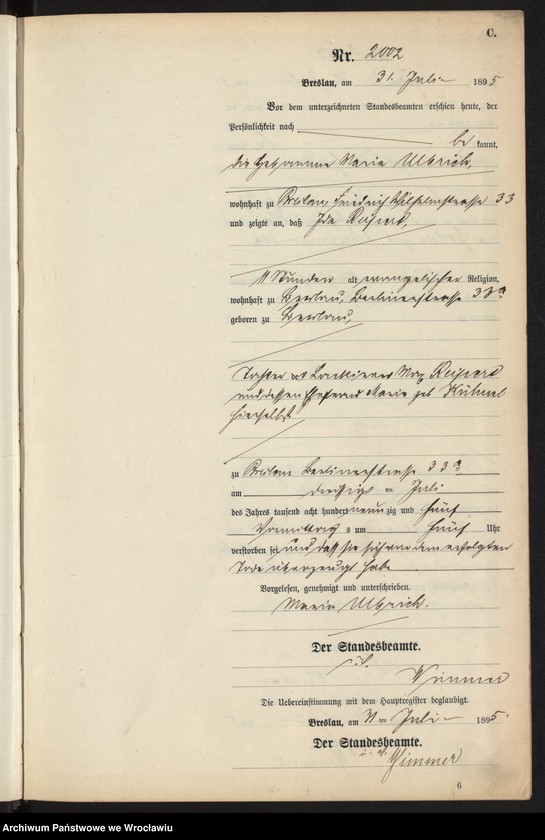 C.
Nr. 2002
Breslau, am 31. Juli 1895
Vor dem unterzeichneten Standesbeamten erschien heute, der
Persönlichkeit nach
be kannt,
die Hebamme Maria Ulbrich,
wohnhaft zu Breslau Friedrich Wilhelmstrasse 33
und zeigte an, daß Ida
11 Stunden alt evangelischer Religion,
wohnhaft zu Breslau, Berlinerstrasse 33a
geboren zu Breslau,
Tochter des Lackierers Max
und dessen Ehefrau Marie geb. Kühnel
hierselbst
zu Breslau Berlinerstrasse 33a
am dreissigs ten Juli
des Jahres tausend acht hundert neun zig und fünf
Vormittag s um fünf Uhr
verstorben sei, und daß sie sich von dem erfolgten
Tode überzeugt habe
Vorgelesen, genehmigt und unterschrieben.
Maria Ulbrich.
Der Standesbeamte.
Die Uebereinstimmung mit dem Hauptregister beglaubigt.
Breslau, am 31 ten Juli 1895.
Der Standesbeamte.
6
Archiwum Państwowe we Wrocławiu